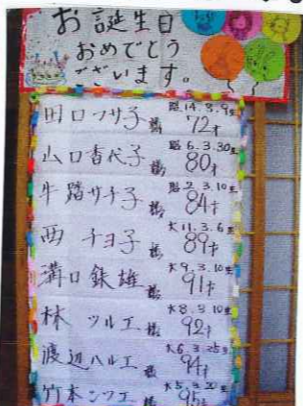 お誕生日
おめでとう
ございます。
田口フサ子 様 昭14.3.9生 72才
山口香代子 様 昭6.3.30生 80才
牛踏サチ子 様 昭2.3.10生 84才
西 チヨ子 様 大11.3.6生 89才
溝口銀雄 様 大9.3.10生 91才
林 ツルエ 様 大8.3.10生 92才
渡辺ハルエ 様 大6.3.25生 94才
竹本 様 大5.3.20生 95才